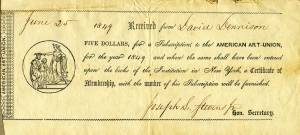 June 25 1849 Received from David Dennison
FIVE DOLLARS, for a Subscription to the AMERICAN ART-UNION,
for the year 1849 and when the same shall have been entered
upon the books of the Institution in New York, a Certificate of
Membership, with the number of his Subscription will be furnished.
Joseph S.
Hon. Secretary.